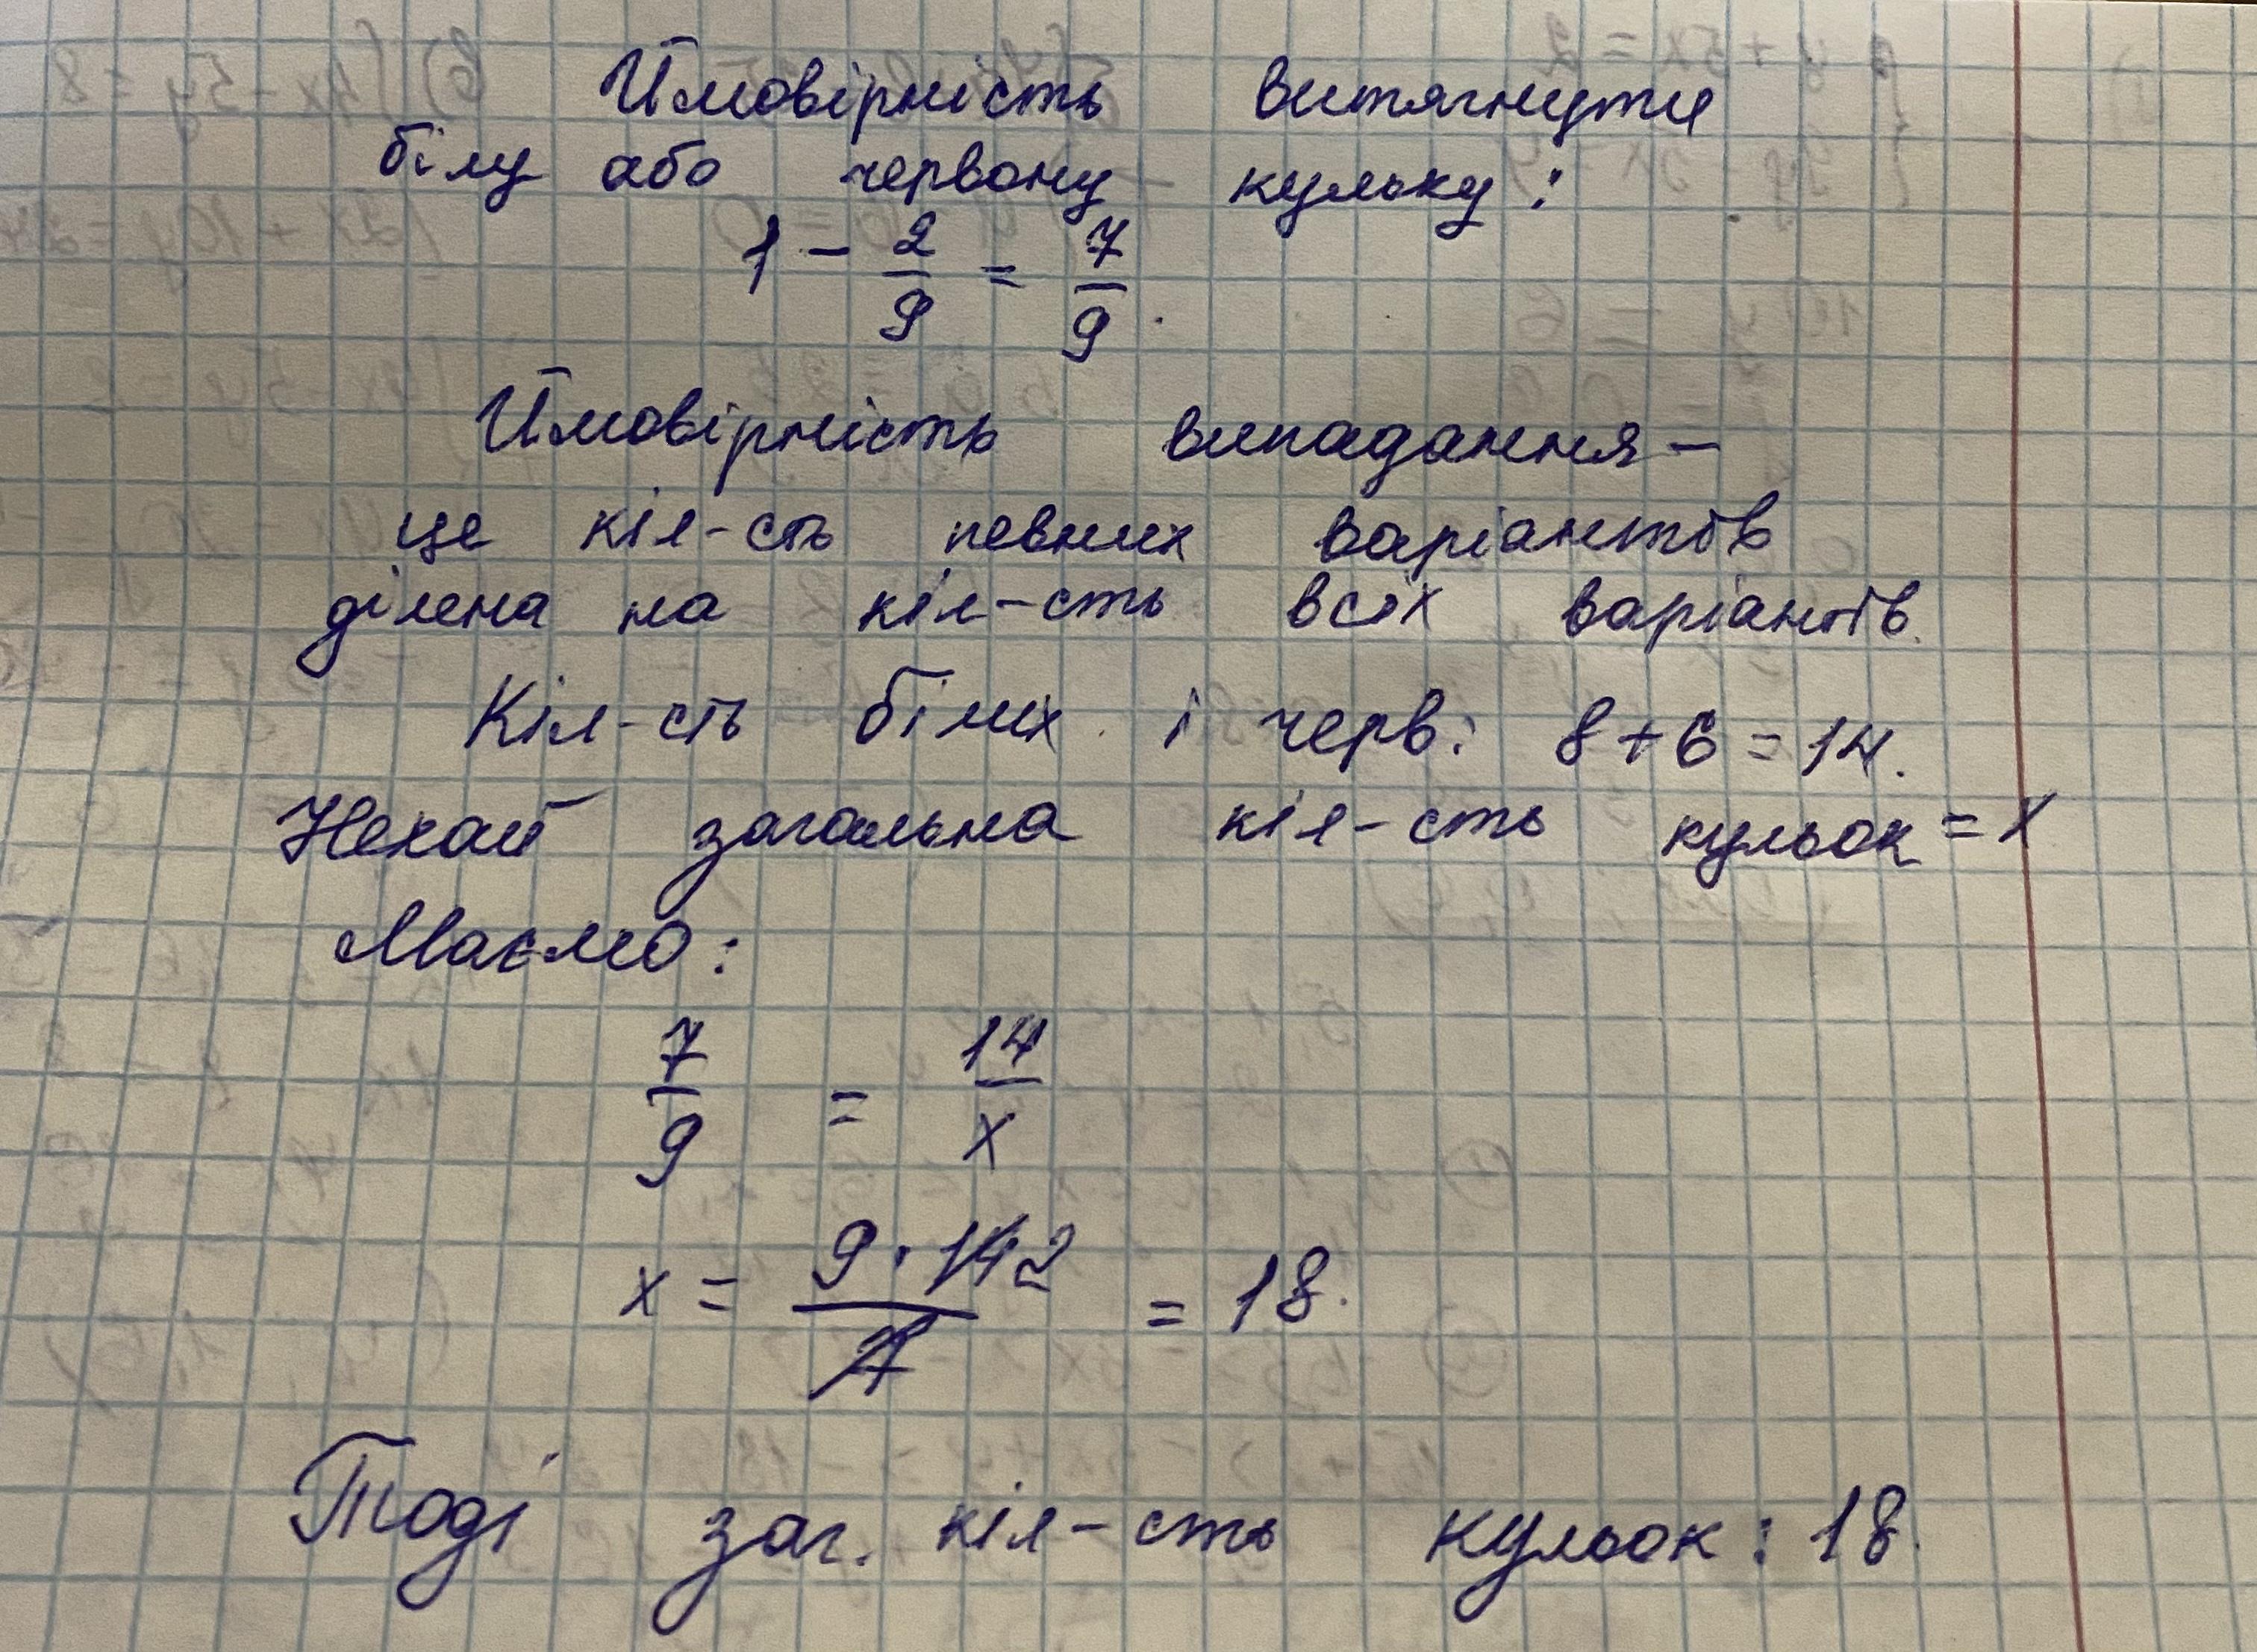 Ймовірність витягнути
білу або червону кульку:
1 - 2/9 = 7/9.
Ймовірність випадання -
це кіл-сть певних варіантів
ділена на кіл-сть всіх варіантів.
Кіл-сть білих і черв: 8 + 6 = 14.
Нехай загальна кіл-сть кульок = x
Маємо:
7/9 = 14/x
x = 9 · 14 2 / 7 = 18.
Тоді заг. кіл-сть кульок: 18.